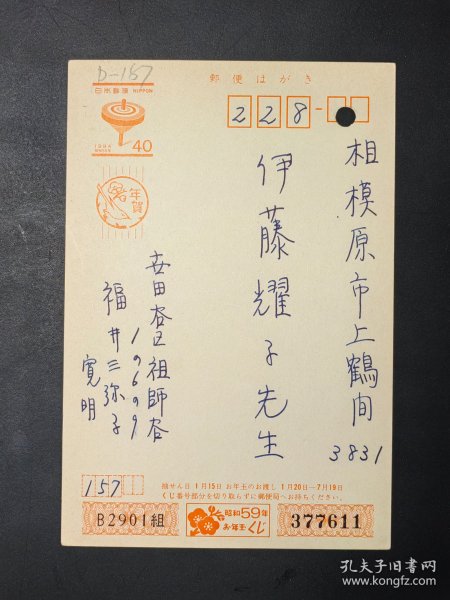 D-157
郵便はがき
日本郵便 NIPPON
1984
40
年賀
228-
相模原市上鶴間
3831
伊藤耀子先生
世田谷区祖師谷
福井三弥子
寛明
157
抽せん日 1月15日 お年玉のお渡し 1月20日―7月19日
くじ番号部分を切り取らずに郵便局へお持ちください。
B2901組
昭和59年
お年玉くじ
377611
孔夫子旧书网
www.kongfz.com